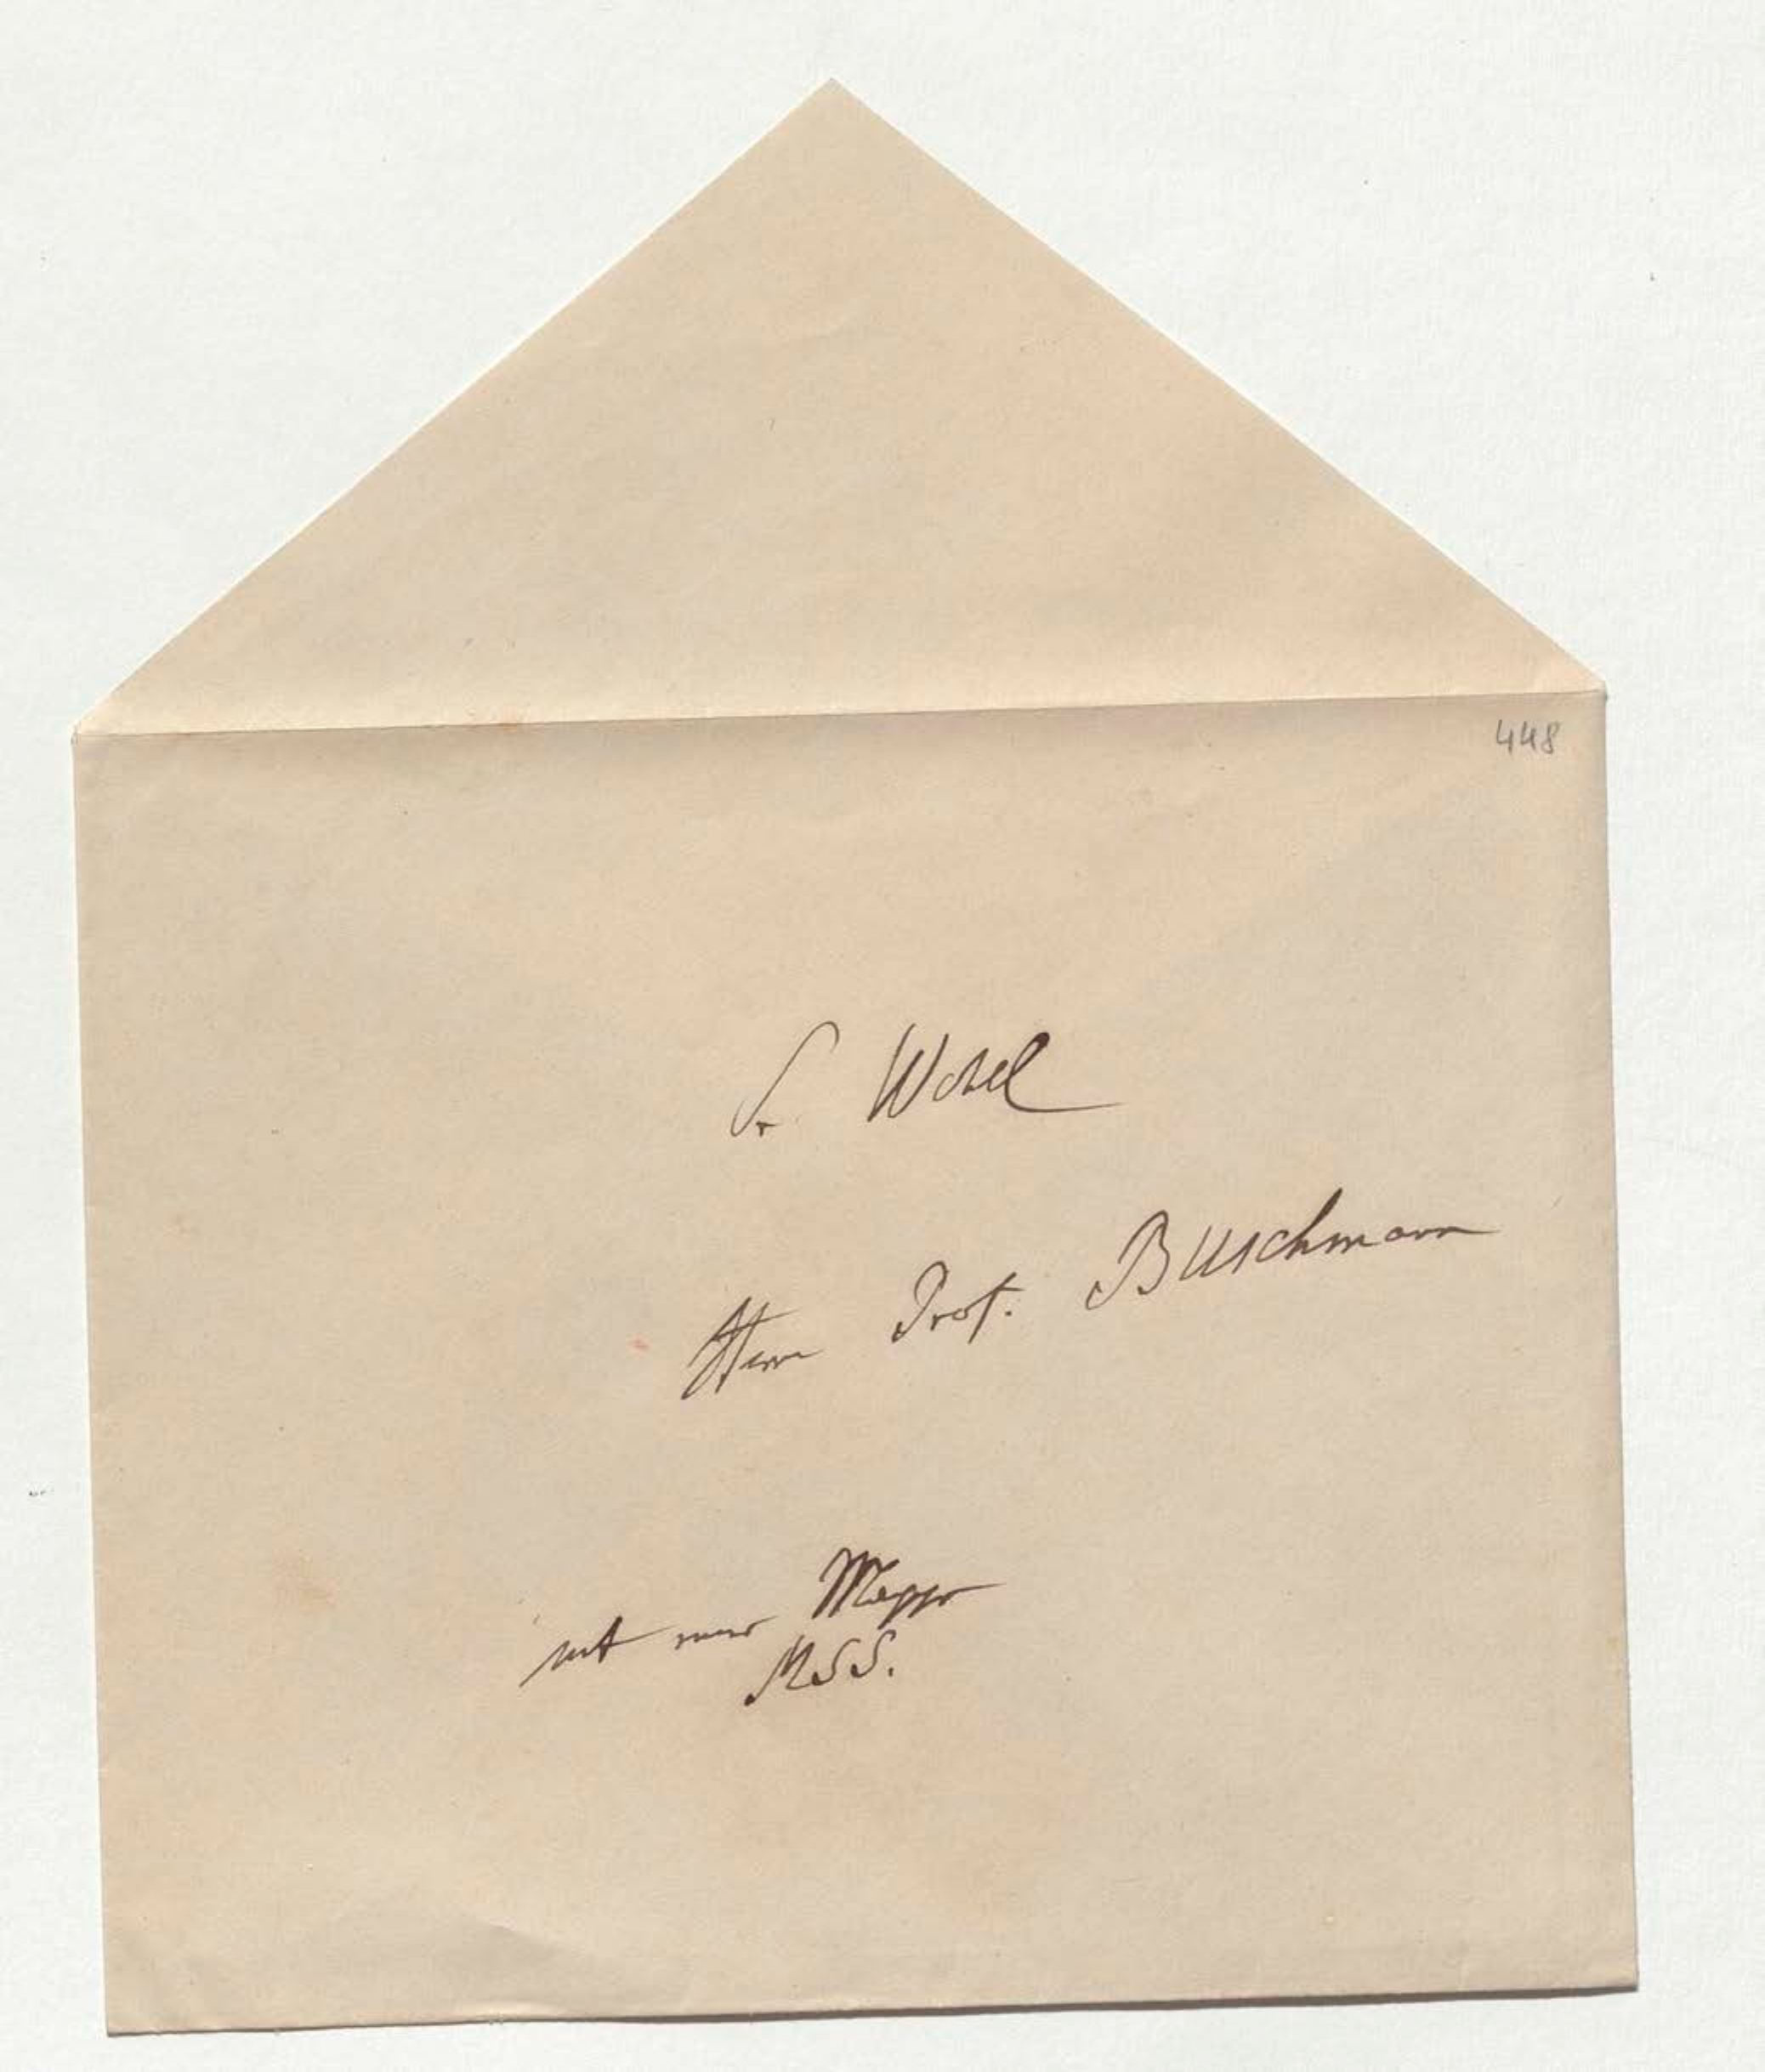 448
Sr Wohl
Herrn Prof. Buschmann
mit einer Mappe
MSS.